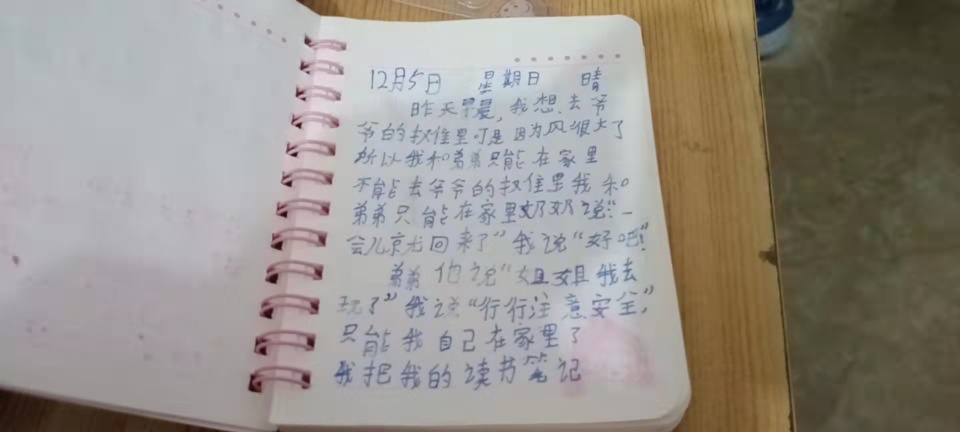 12月5日 星期日 晴
昨天早晨,我想去爷
爷的权佳里可是因为风很大了
所以我和弟弟只能在家里
不能去爷爷的权佳里我和
弟弟只能在家里奶奶说:“一
会儿京尤回来了”我说“好吧!”
弟弟他说“姐姐我去
玩了”我说“行行注意安全,”
只能我自己在家里了
我把我的读书笔记